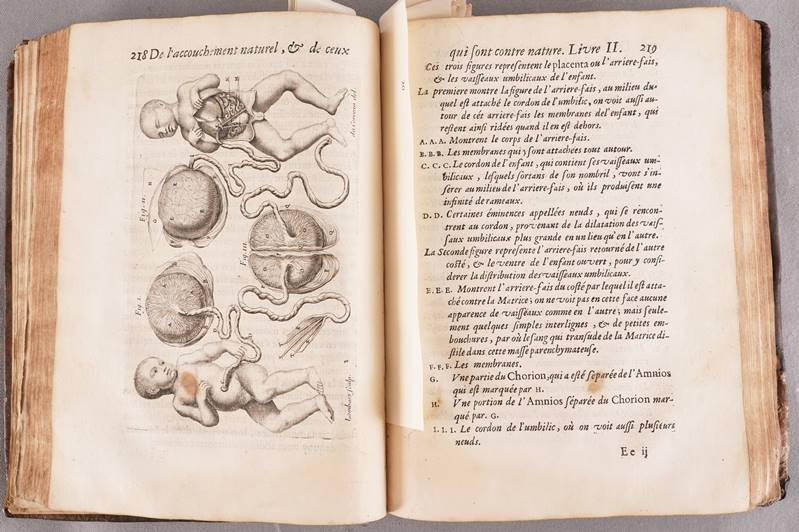 218 De l'accouchement naturel, & de ceux
Fig. II.
Fig. III.
Fig. I.
qui sont contre nature. Livre II. 219
Ces trois figures representent le placenta ou l'arriere-fais,
& les vaisseaux umbilicaux de l'enfant.
La premiere montre la figure de l'arriere-fais, au milieu du-
quel est attaché le cordon de l'umbilic, on voit aussi au-
tour de cés arriere-fais les membranes de l'enfant, qui
restent ainsi ridées quand il en est dehors.
A. A. A. Montrent le corps de l'arriere-fais.
B. B. B. Les membranes qui y sont attachées tout autour.
C. C. C. Le cordon de l'enfant, qui contient ses vaisseaux um-
bilicaux, lesquels sortans de son nombril, vont s'in-
serer au milieu de l'arriere-fais, où ils produisent une
infinité de rameaux.
D. D. Certaines éminences appellées neuds, qui se rencon-
trent au cordon, provenant de la dilatation des vais-
seaux umbilicaux plus grande en un lieu qu'en l'autre.
La Seconde figure represente l'arriere-fais retourné de l'autre
costé, & le ventre de l'enfant ouvert, pour y consi-
derer la distribution des vaisseaux umbilicaux.
E. E. E. Montrent l'arriere-fais du costé par lequel il est atta-
ché contre la Matrice; on ne voit pas en cette face aucune
apparence de vaisseaux comme en l'autre; mais seule-
ment quelques simples interlignes, & de petites em-
bouchures, par où le sang qui transude de la Matrice di-
stile dans cette masse parenchymateuse.
F. F. F. Les membranes.
G. Vne partie du Chorion, qui a esté séparée de l'Amnios
qui est marquée par H.
H. Vne portion de l'Amnios séparée du Chorion mar-
qué par G.
I. I. I. Le cordon de l'umbilic, où on voit aussi plusieurs
neuds.
Ee ij